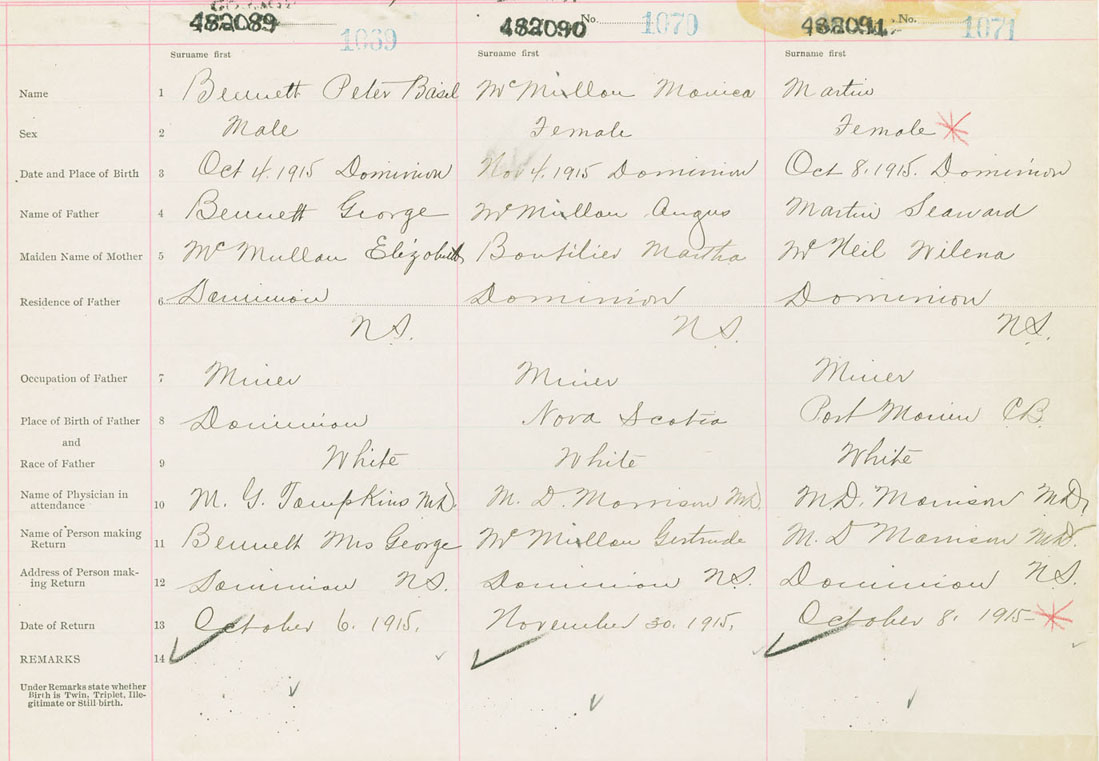 482089 1069 482090 No. 1070 482091 No. 1071
Surname first Surname first Surname first
Name 1 Bennett Peter Basil McMillan Monica Martin
Sex 2 Male Female Female
Date and Place of Birth 3 Oct 4. 1915 Dominion Nov 4. 1915 Dominion Oct 8. 1915. Dominion
Name of Father 4 Bennett George McMillan Angus Martin Seaward
Maiden Name of Mother 5 McMullan Elizabeth Boutilier Martha McNeil Wilena
Residence of Father 6 Dominion Dominion Dominion
N.S. N.S. N.S.
Occupation of Father 7 Miner Miner Miner
Place of Birth of Father 8 Dominion Nova Scotia Port Morien C.B.
and
Race of Father 9 White White White
Name of Physician in
attendance 10 M. G. Tompkins M.D. M. D. Morrison M.D. M.D. Morrison M.D.
Name of Person making
Return 11 Bennett Mrs George McMillan Gertrude M. D Morrison M.D.
Address of Person mak-
ing Return 12 Dominion N.S. Dominion N.S. Dominion N.S.
Date of Return 13 October 6. 1915. November 30. 1915. October 8. 1915
REMARKS 14
Under Remarks state whether
Birth is Twin, Triplet, Ille-
gitimate or Still-birth.